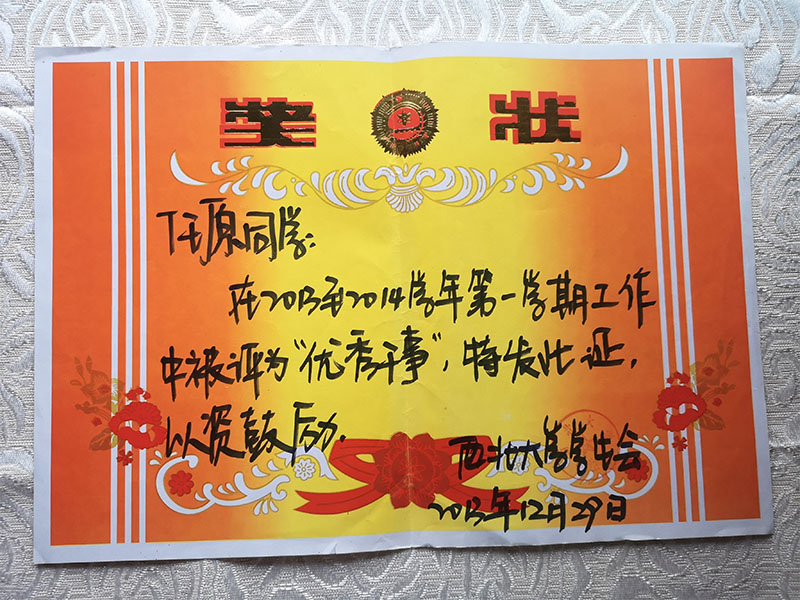 奖状
任原同学:
在2013至2014学年第一学期工作
中被评为“优秀干事”,特发此证,
以资鼓励.
西北大学学生会
2013年12月29日